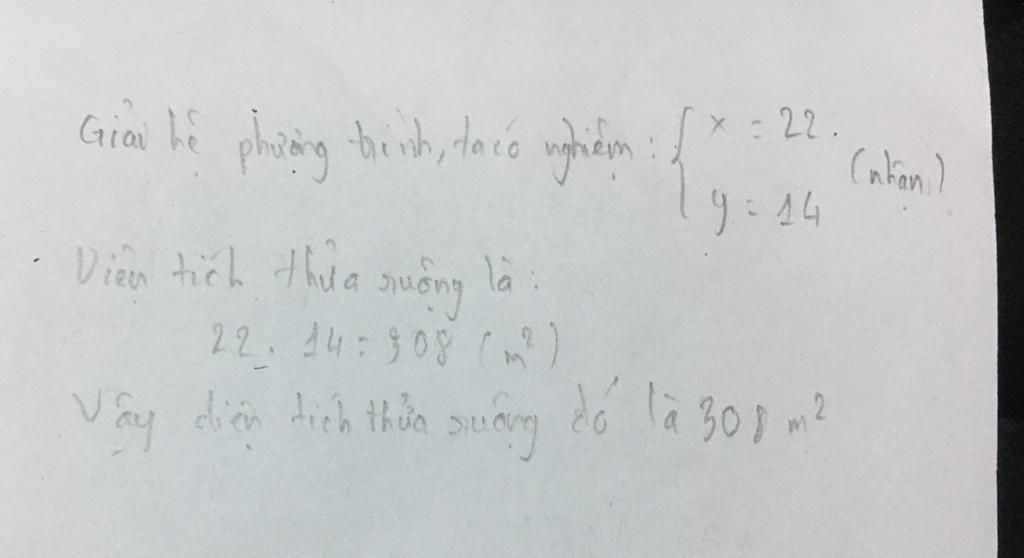 Giải hệ phương trình, ta có nghiệm: { x = 22.
y = 14 (nhận)
Diện tích thửa ruộng là:
22. 14 = 308 (m²)
Vậy diện tích thửa ruộng đó là 308 m²